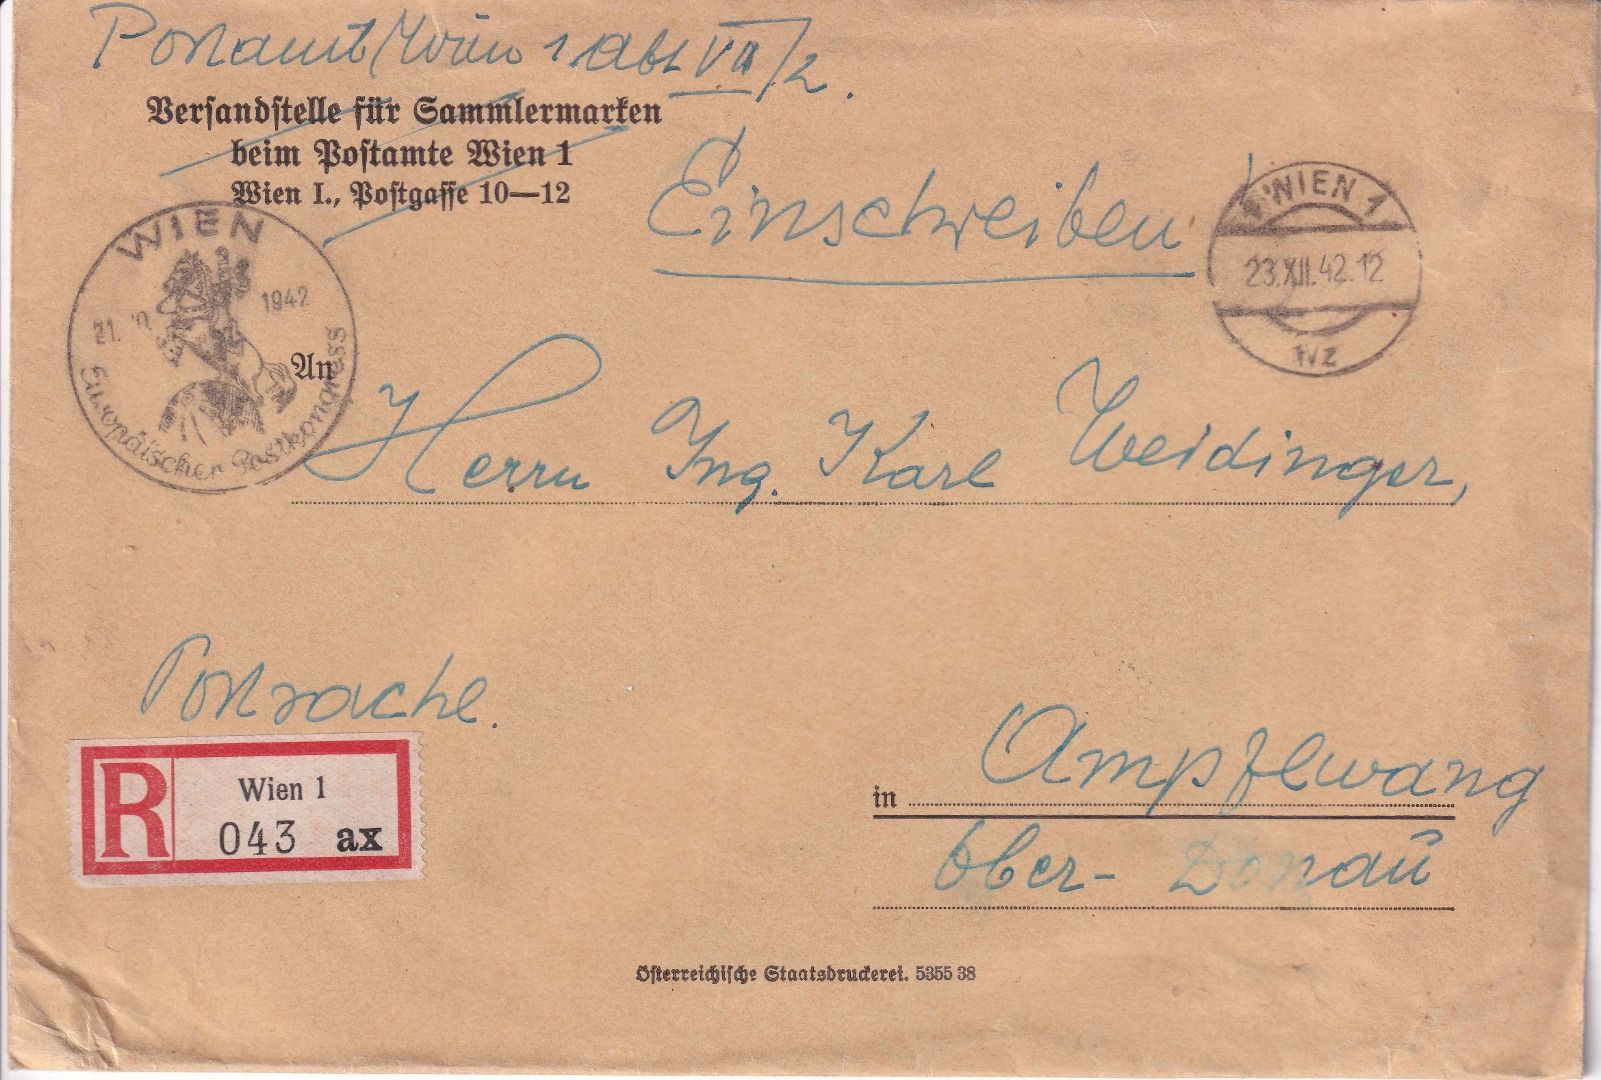 Postamt Wien 1 Abt VII/2.
Versandstelle für Sammlermarken
beim Postamte Wien 1
Wien I., Postgasse 10—12
Einschreiben!
WIEN 1
23.XII.42.12
WIEN
21. 1942
Europäischer Postkongress
An
Herrn Ing. Karl Weidinger,
Postsache.
R
Wien 1
043 ax
in Ampflwang
Ober-Donau
Österreichische Staatsdruckerei. 5355 38